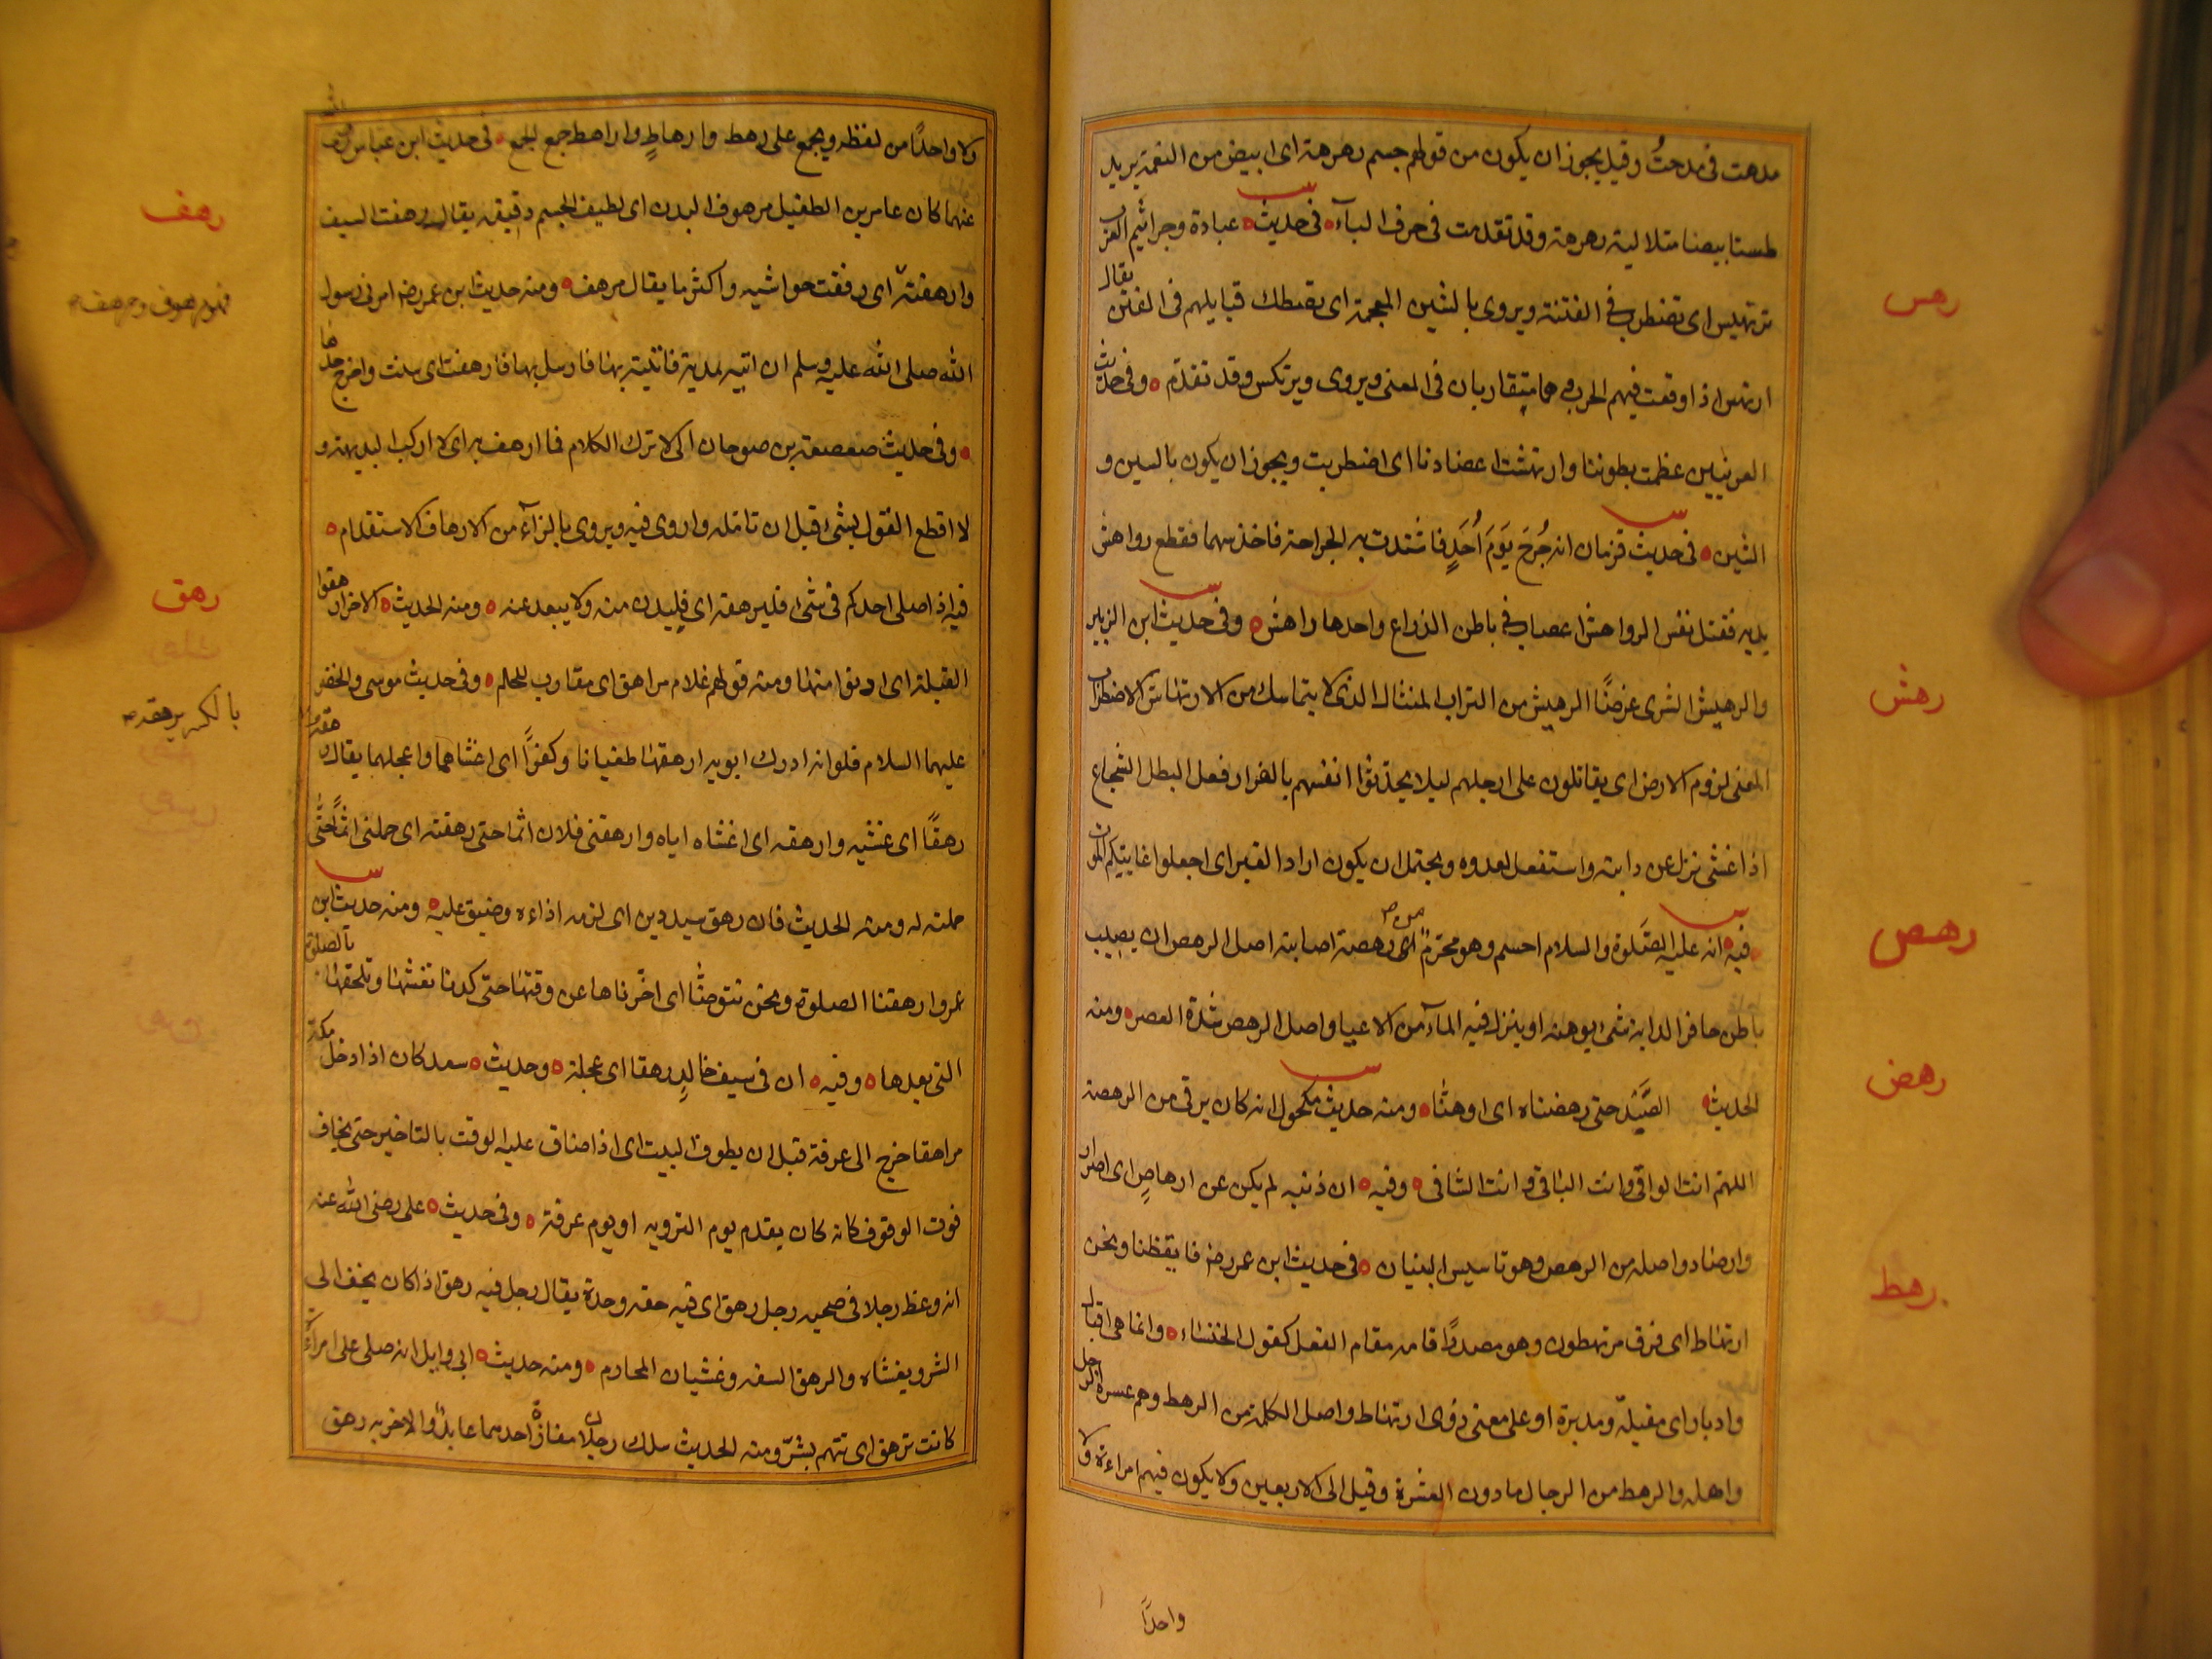 مدهت فى مدحتُ وقيل يجوز ان يكون من قولهم جسم رهرهة اى ابيض من النعمة يريد
طستا بيضا متلالية رهرهة وقد تقدمت فى حرف البآء فى حديث عبادة وجراثيم العرب
ترتهس اى تضطرب فى الفتنة ويروى بالشين المعجمة اى تصطك قبايلهم فى الفتن يقال
ارتهس اذا وقعت فيهم الحرب وهما متقاربان فى المعنى ويروى ويرتكس وقد تقدم وفى حديث
العرنيين عظمت بطوننا وارتهشت اعضادنا اى اضطربت ويجوز ان يكون بالسين و
الشين فى حديث قزمان انه جُرحَ يَومَ أُحَدٍ فاشتدت به الجراحة فاخذ سهما فقطع رواهش
يديه فقتل نفس الرواهش اعصاب فى باطن الذراع واحدها راهش وفى حديث ابن الزبير
والرهيش الثرى عرضًا الرهيش من التراب المنثال الذى لا يتماسك من الارتهاش الاضطراب
المعنى لزوم الارض اى يقاتلون على ارجلهم ليلا يحدّثوا انفسهم بالفرار فعل البطل الشجاع
اذا غشى نزل عن دابته واستقعل لعدوه ويحتمل ان يكون اراد القبر اى اجعلوا غايتكم الموت
فيه انه عليه الصَّلوة والسلام احتجم وهو محرمٌ من رهصة اصابته اصل الرهص ان يصيب
باطن حافر الدابة شى يوهنه او ينزل فيه المآء من الاعيا واصل الرهص شدة العصر ومنه
الحديث الصَّيد حتى رهضناه اى اوهنّا ومنه حديث مكحول انه كان يرقى من الرهصة
اللهم انت الواقى وانت الباقى وانت الشافى وفيه ان ذنبه لم يكن عن ارهاصٍ اى اصرار
وارصاد واصله من الرهص وهو تاسيس البنيان فى حديث ابن عمر رضه فايقظنا ونحن
ارتهاط اى فرق مرتهطون وهو مصدرٌ اقامه مقام الفعل كقول الخنساء وانما هى اقبال
وادبار اى مقبلة ومدبرة او على معنى ذوى ارتهاط واصل الكلمة من الرهط وهم عسيرة الرجل
واهله والرهط من الرجال ما دون العشرة وقيل الى الاربعين ولا يكون فيهم امراءة ولا
واحدًا
رهس
رهش
رهص
رهض
رهط
ولا واحدًا من لفظه ويجمع على رهط وارهاطٍ واراهط جمع الجمع فى حديث ابن عباس رضى
عنهما كان عامر بن الطفيل مرهوف البدن اى لطيف الجسم دقيقه يقال رهفت السيف
وارهفته اى رققت حواشيه واكثر ما يقال مرهف ومنه حديث ابن عمر رضه امرنى رسول
الله صلى الله عليه وسلم ان اتيه بمدية فاتيته بها فارسل بها فارهفت اى سنت واخرج حدها
وفى حديث صعصعة بن صوحان انى لا ترك الكلام فما ارهف به اى لا اركب البديهة و
لا اقطع القول بشىء قبل ان تامله واروى فيه ويروى بالزآء من الازهاف الاستقدام
فيه اذا صلى احدكم فى شىء فليرهقه اى فليدن منه ولا يبعد عنه ومنه الحديث الاخر ارهقوا
القبلة اى ادنوا منها ومنه قولهم غلام مراهق اى مقارب للحلم وفى حديث موسى والخضر
عليهما السلام فلو انه ادرك ابويه ارهقهما طغيانا وكفرًا اى اغشاهما واعجلهما يقال رهقه
رهقًا اى غشيه وارهقه اى اغشاه اياه وارهقنى فلان اثما حتى رهقته اى حملنى اثمًا حتّى
حملته له ومنه الحديث فان رهق سيده دين اى لزمه اداءه وضيق عليه ومنه حديث ابن
عمر وارهقنا الصلوة ونحن نتوضّا اى اخّرناها عن وقتها حتى كدنا نغشها ونلحقها بالصلوة
التى بعدها وفيه ان فى سيف خالدٍ رهقا اى عجلة وحديث سعد كان اذا دخل مكة
مراهقا خرج الى عرفة قبل ان يطوف البيت اى اذا ضاق عليه الوقت بالتاخير حتى يخاف
فوت الوقوف كانه كان يقدم يوم الترويه او يوم عرفة وفى حديث على رضى الله عنه
انه وعظ رجلا فى صحبه رجل رهق اى فيه خفه وحدة يقال رجل فيه رهق اذا كان يخف الى
الشر ويغشاه والرهق السفه وغشيان المحارم ومنه حديث ابى وايل انه صلى على امرأة
كانت ترهق اى تتهم بشرّ ومنه الحديث سلك رجلان مفازةً احدهما عابدٌ والاخر به رهق
رهف
فهو مرهوف ومرهف
رهق
بالكسر يرهقه